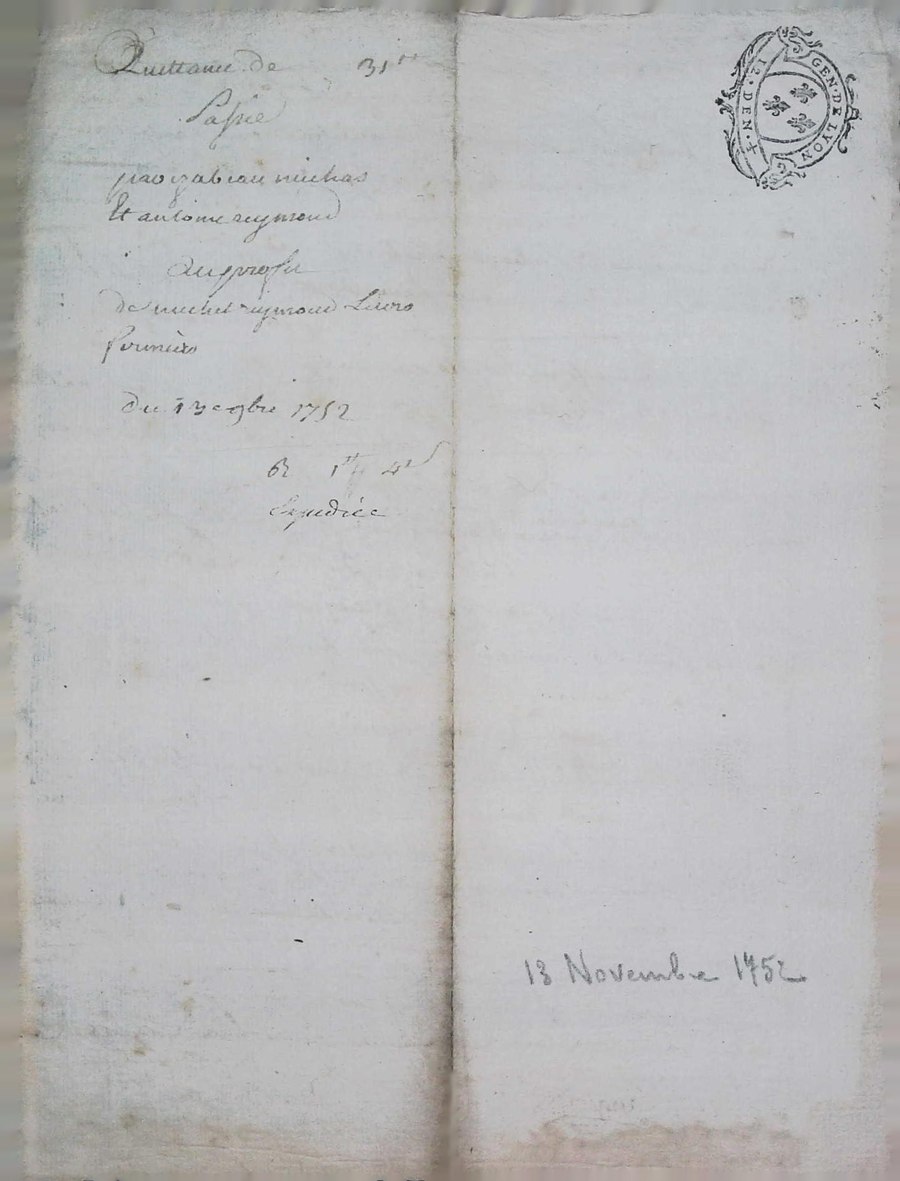 Quittance de 31 tt
Passée
par izabeau michas
Et antoine reymond
au profit
de michel reymond Leurs
fermiers
du 13e 9bre 1752
R 1 tt 4 s
Expediée
GEN · DE LYON
12 · DEN
13 Novembre 1752